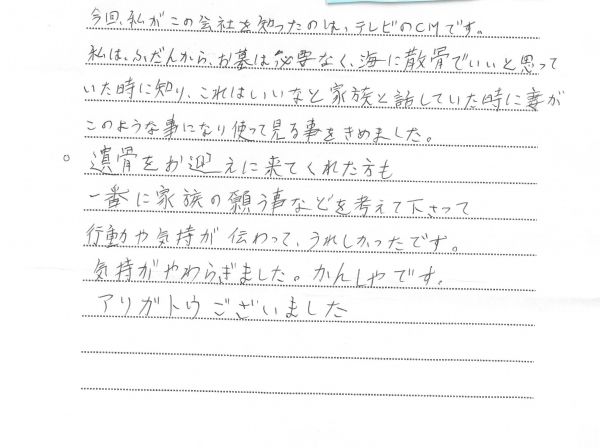 今回、私がこの会社を知ったのは、テレビのCMです。
私は、ふだんから、お墓は必要なく、海に散骨でいいと思って
いた時に知り、これはいいなと家族と話していた時に妻が
このような事になり使って見る事をきめました。
。遺骨をお迎えに来てくれた方も
一番に家族の願う事などを考えて下さって
行動や気持が伝わって、うれしかったです。
気持がやわらぎました。かんしゃです。
アリガトウございました